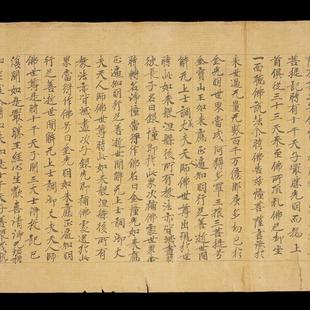 菩提記時有十千天子最勝光明而為上
首俱從三十三天來至佛所頂礼佛足却坐
一面聽佛說法尒時佛告妙幢菩薩言汝於
來世過无量无數百千万億那庾多劫已於
金光明世界當成阿耨多羅三藐三菩提号
金寶山王如來應正遍知明行足善逝世間
解无上士調御丈夫天人師佛世尊出現於世
時此如來般涅槃後所有教法亦皆滅盡時
彼長子名曰銀幢即於此界次補佛處世界尒
時轉名淨幢當得作佛名曰金幢光如來應
正遍知明行足善逝世間解无上士調御丈
夫天人師佛世尊時此如來般涅槃後所有
教法亦皆滅盡次子銀光即補佛處還於此
界當得作佛号曰金光明如來應正遍知明
行足善逝世間解无上士調御丈夫天人師
佛世尊是時十千天子聞三大士得授記已
復聞如是最勝王經心生歡喜清淨无垢